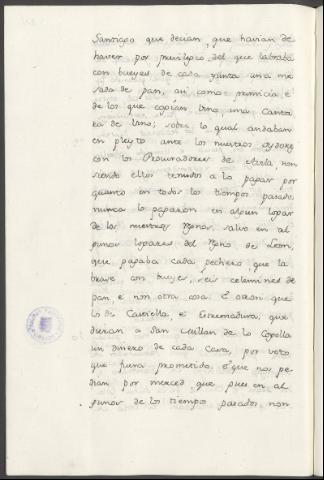 Santiago que decian, que havian de
haver, por privilegio, del que labraba
con bueyes de cada yunta una me
dada de pan, asi como primicia, é
de los que cogian vino, una canta
ra de vino; sobre lo qual andaban
en pleyto ante los nuestros oydores
con los Procuradores de ella, non
siendo ellos tenudos a lo pagar por
quanto en todos los tiempos pasados
nunca lo pagaron en algun logar
de los nuestros Rynos, salvo en al
gunos logares del Ryno de Leon,
que pagaba cada pechero, que la
brava con bueyes, seis celemines de
pan, e non otra cosa. E otrosi que
lo de Castiella, e Extremadura, que
dieran a San Millan de la Cogolla
un dinero de cada casa, por voto
que fuera prometido. E que nos pe
dian por merced, que pues en al
gunos de los tiempos pasados non